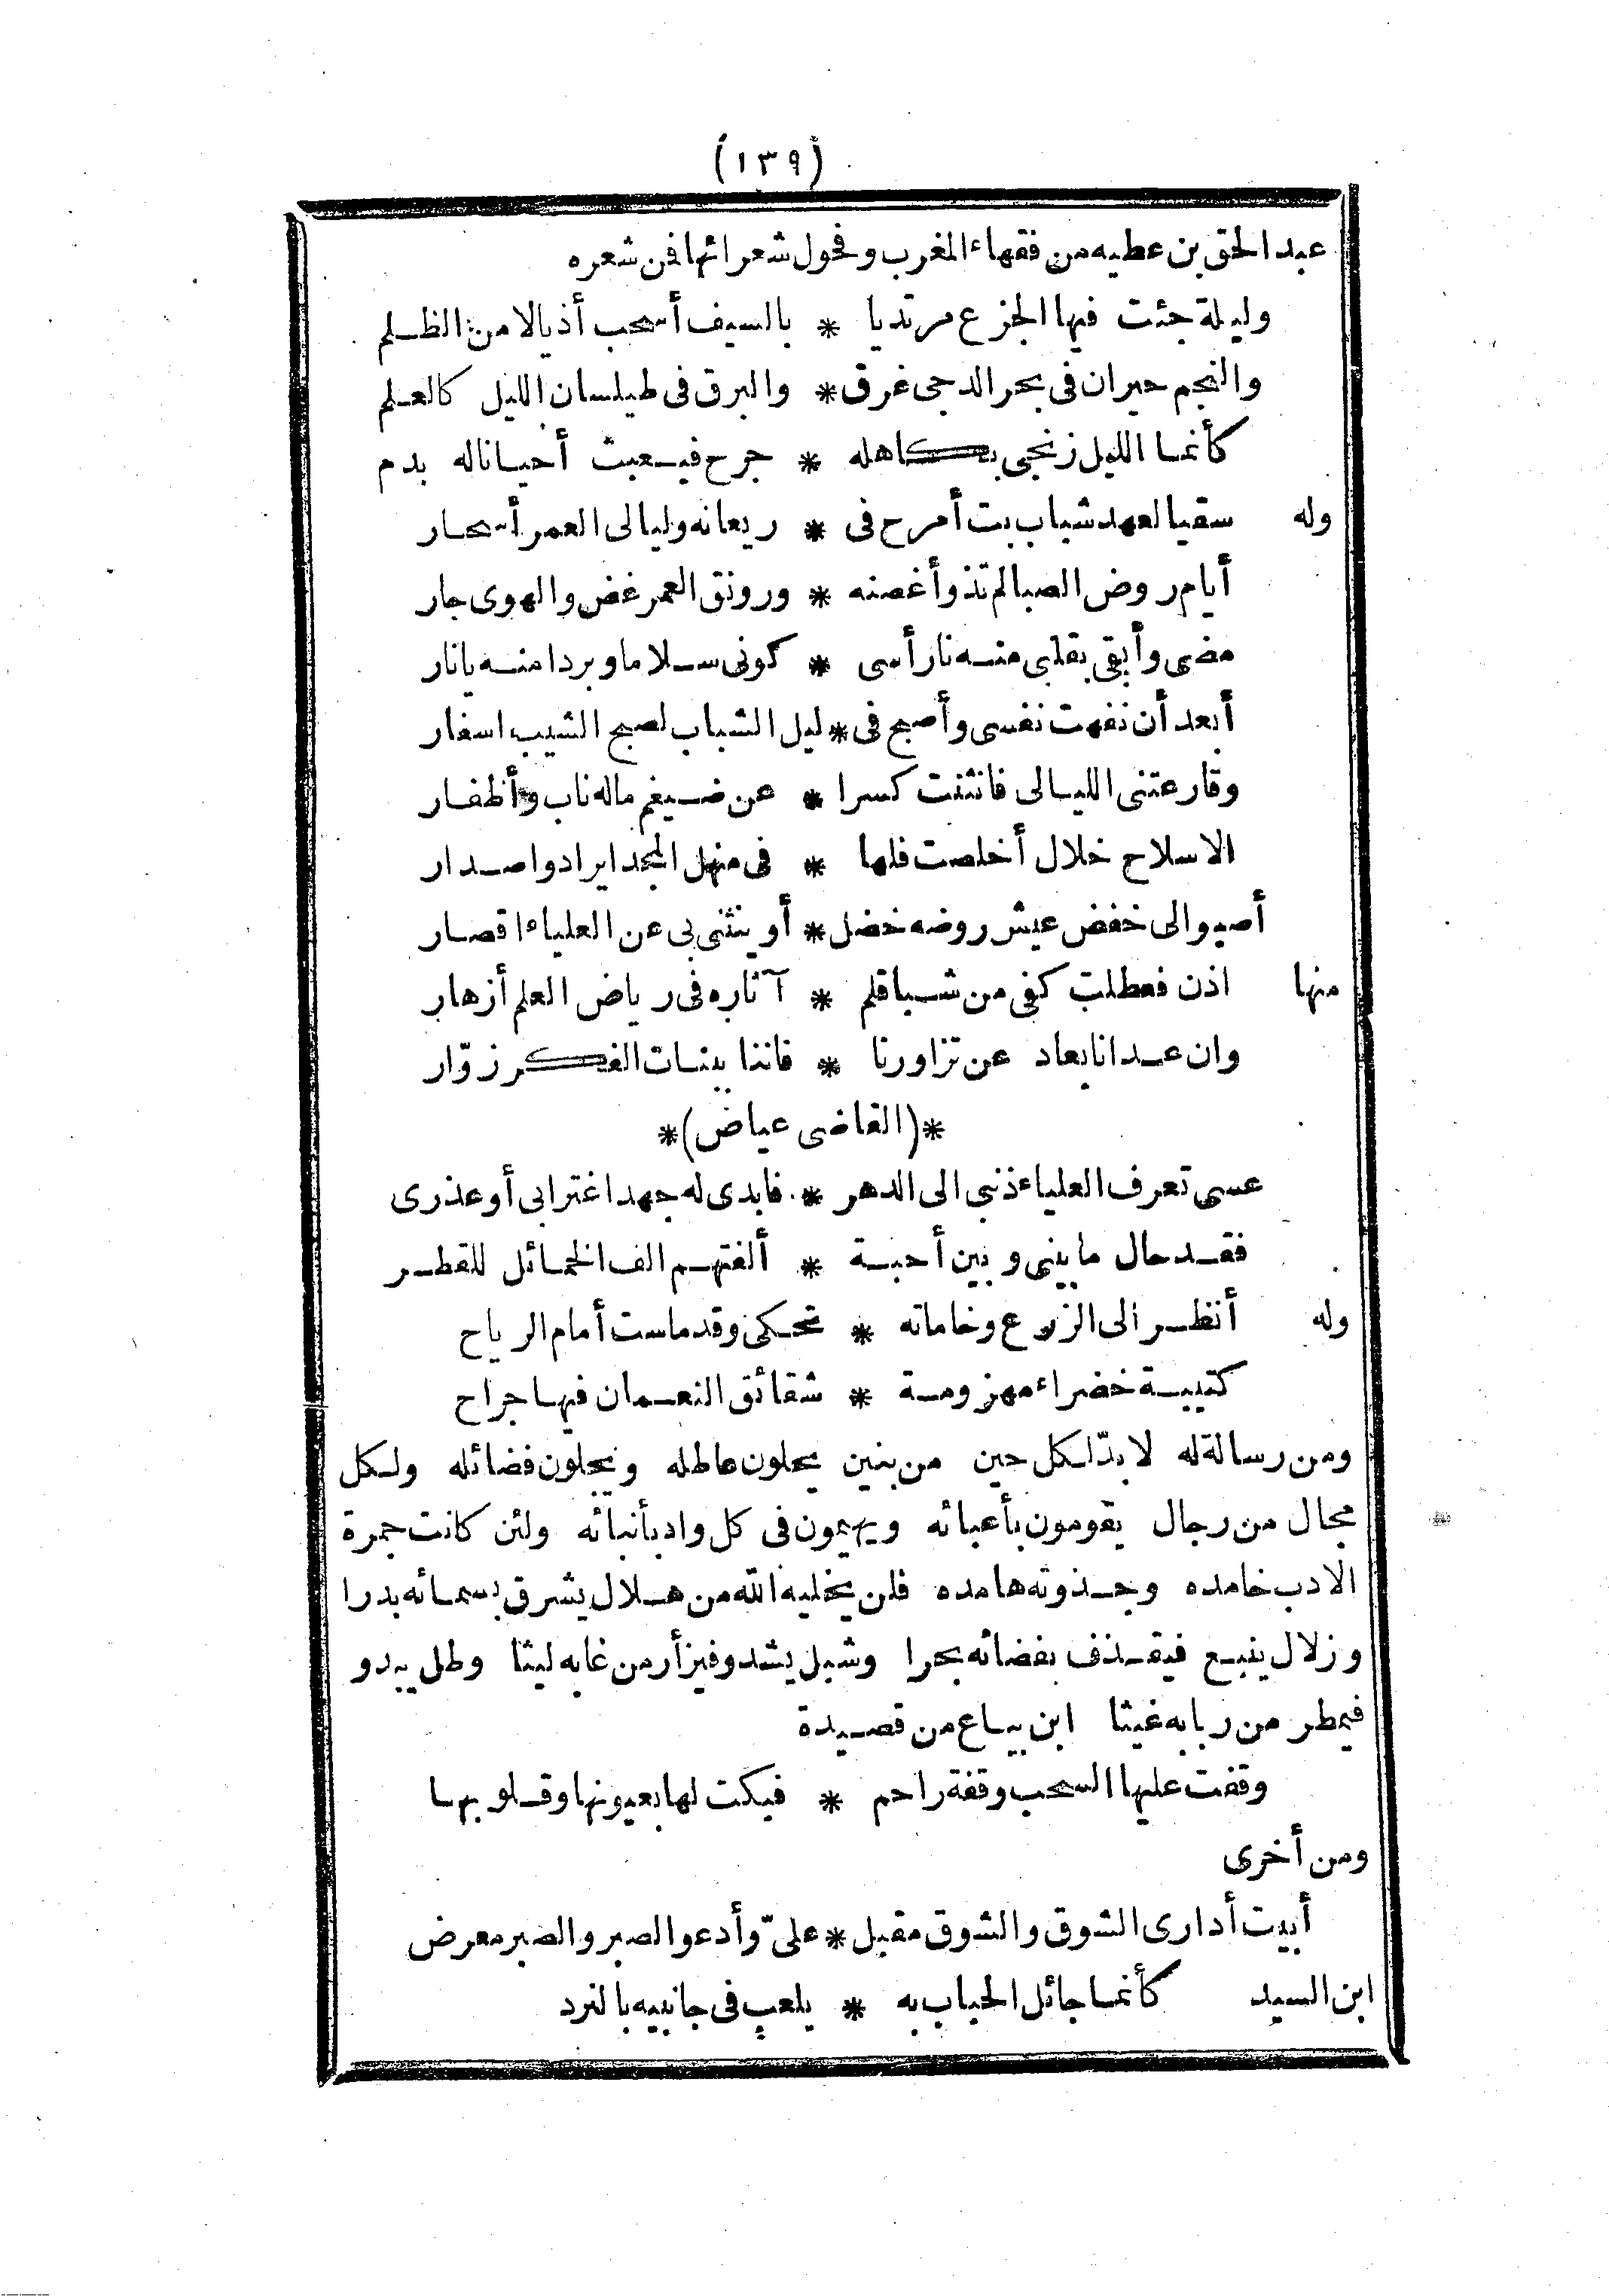 (١٣٩)
عبد الحق بن عطيه من فقهاء المغرب وفحول شعرائها فمن شعره
وليلة جئت فيها الجزع مرتديا * بالسيف أسحب أذيالا من الظلم
والنجم حيران فى بحر الدجى غرق * والبرق فى طيلسان الليل كالعلم
كأنما الليل زنجى بكاهله * جرح فيـعبث أحيانا له بدم
وله سقيا لعهد شباب بت أمرح فى * ريعانه وليالى العمر أسحار
أيام روض الصبا لم تذو أغصنه * ورونق العمر غض والهوى جار
مضى وأبقى بقلبى منه نار أسى * كونى سلاما وبردا منه يا نار
أبعد أن نفهت نفسى وأصبح فى * ليل الشباب لصبح الشيب اسفار
وقارعتنى الليالى فانثنت كسرا * عن ضيغم ماله ناب وأظفار
الا سلاح خلال أخلصت فلها * فى منهل المجد ايراد واصدار
أصبو الى خفض عيش روضه خضل * أو ينثنى بى عن العلياء اقصار
منها اذن فعطلت كفى من شبا قلم * آثاره فى رياض العلم أزهار
وان عدانا بعاد عن تزاورنا * فاننا ببنات الفكر زوّار
*(القاضى عياض)*
عسى تعرف العلياء ذنبى الى الدهر * فابدى له جهد اغترابى أو عذرى
فقد حال ما بينى وبين أحبة * ألفتهم الف الخمائل للقطر
وله أنظر الى الزرع وخاماته * تحكى وقد ماست أمام الرياح
كتيبة خضراء مهزومة * شقائق النعمان فيها جراح
ومن رسالة له لا بدّ لكل حين من بنين يحلون عاطله ويجلون فضائله ولكل
مجال من رجال يقومون بأعبائه ويهيمون فى كل واد بأنبائه ولئن كانت جمرة
الادب خامده وجذوته هامده فلن يخليه الله من هلال يشرق بسمائه بدرا
وزلال ينبع فيقذف بفضائه بحرا وشبل يشدو فيزأر من غابه ليثا وطل يبدو
فيمطر من ربابه غيثا ابن بياع من قصيدة
وقفت عليها السحب وقفة راحم * فبكت لها بعيونها وقلوبها
ومن أخرى
أبيت أدارى الشوق والشوق مقبل * علىّ وأدعو الصبر والصبر معرض
ابن السيد كأنما جائل الحباب به * يلعب فى جانبيه بالنرد